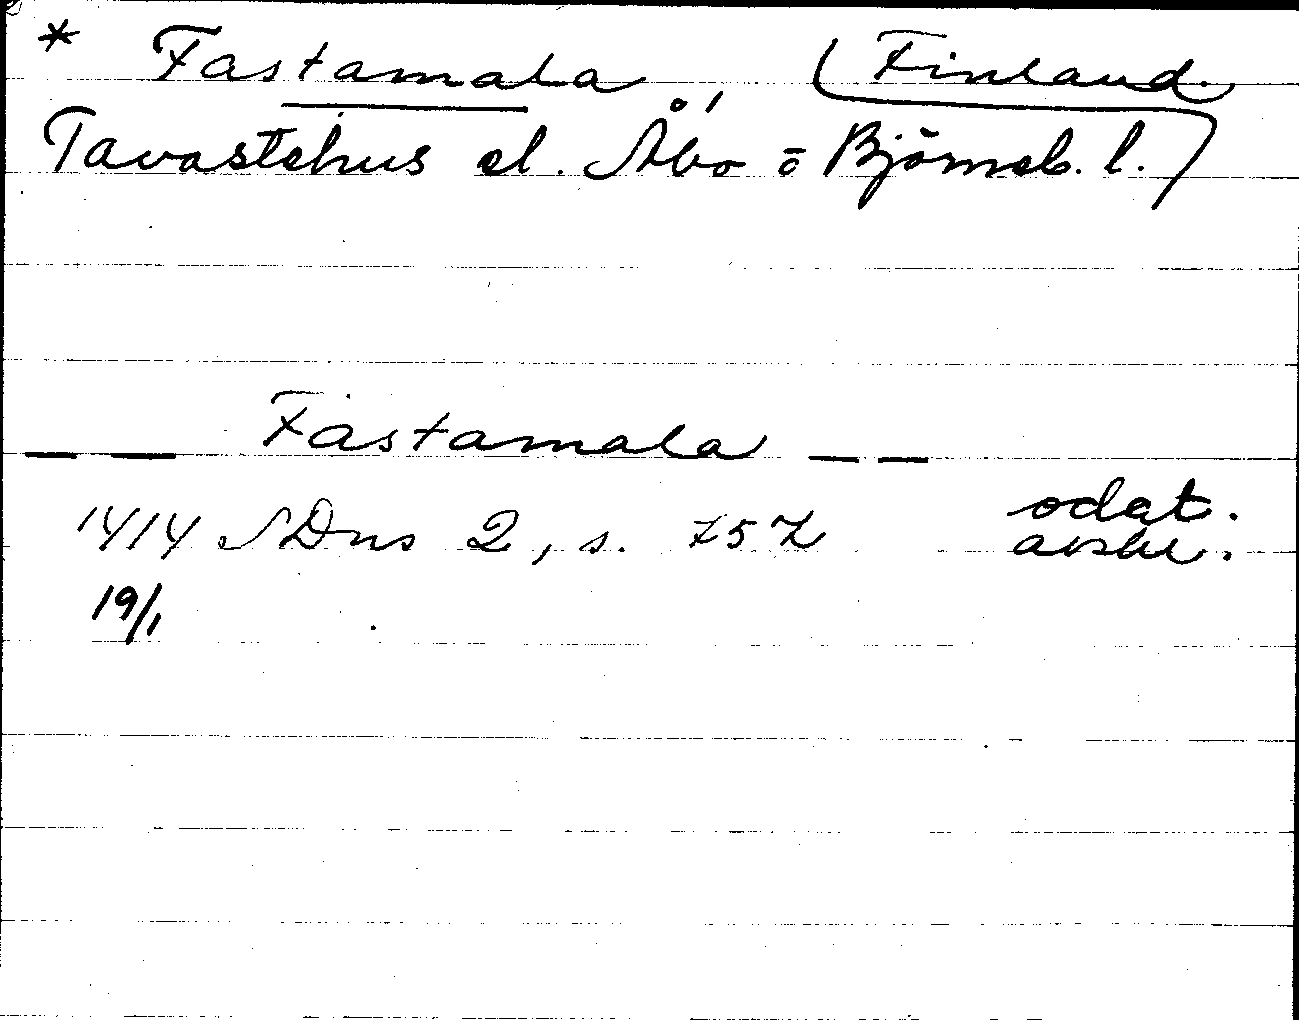 * Fastamala (Finland.
Tavastehus el. Åbo o Björneb. l.)
— — Fastamala — —
1414 SDns 2, s. 757 odat.
19/1 avskr.